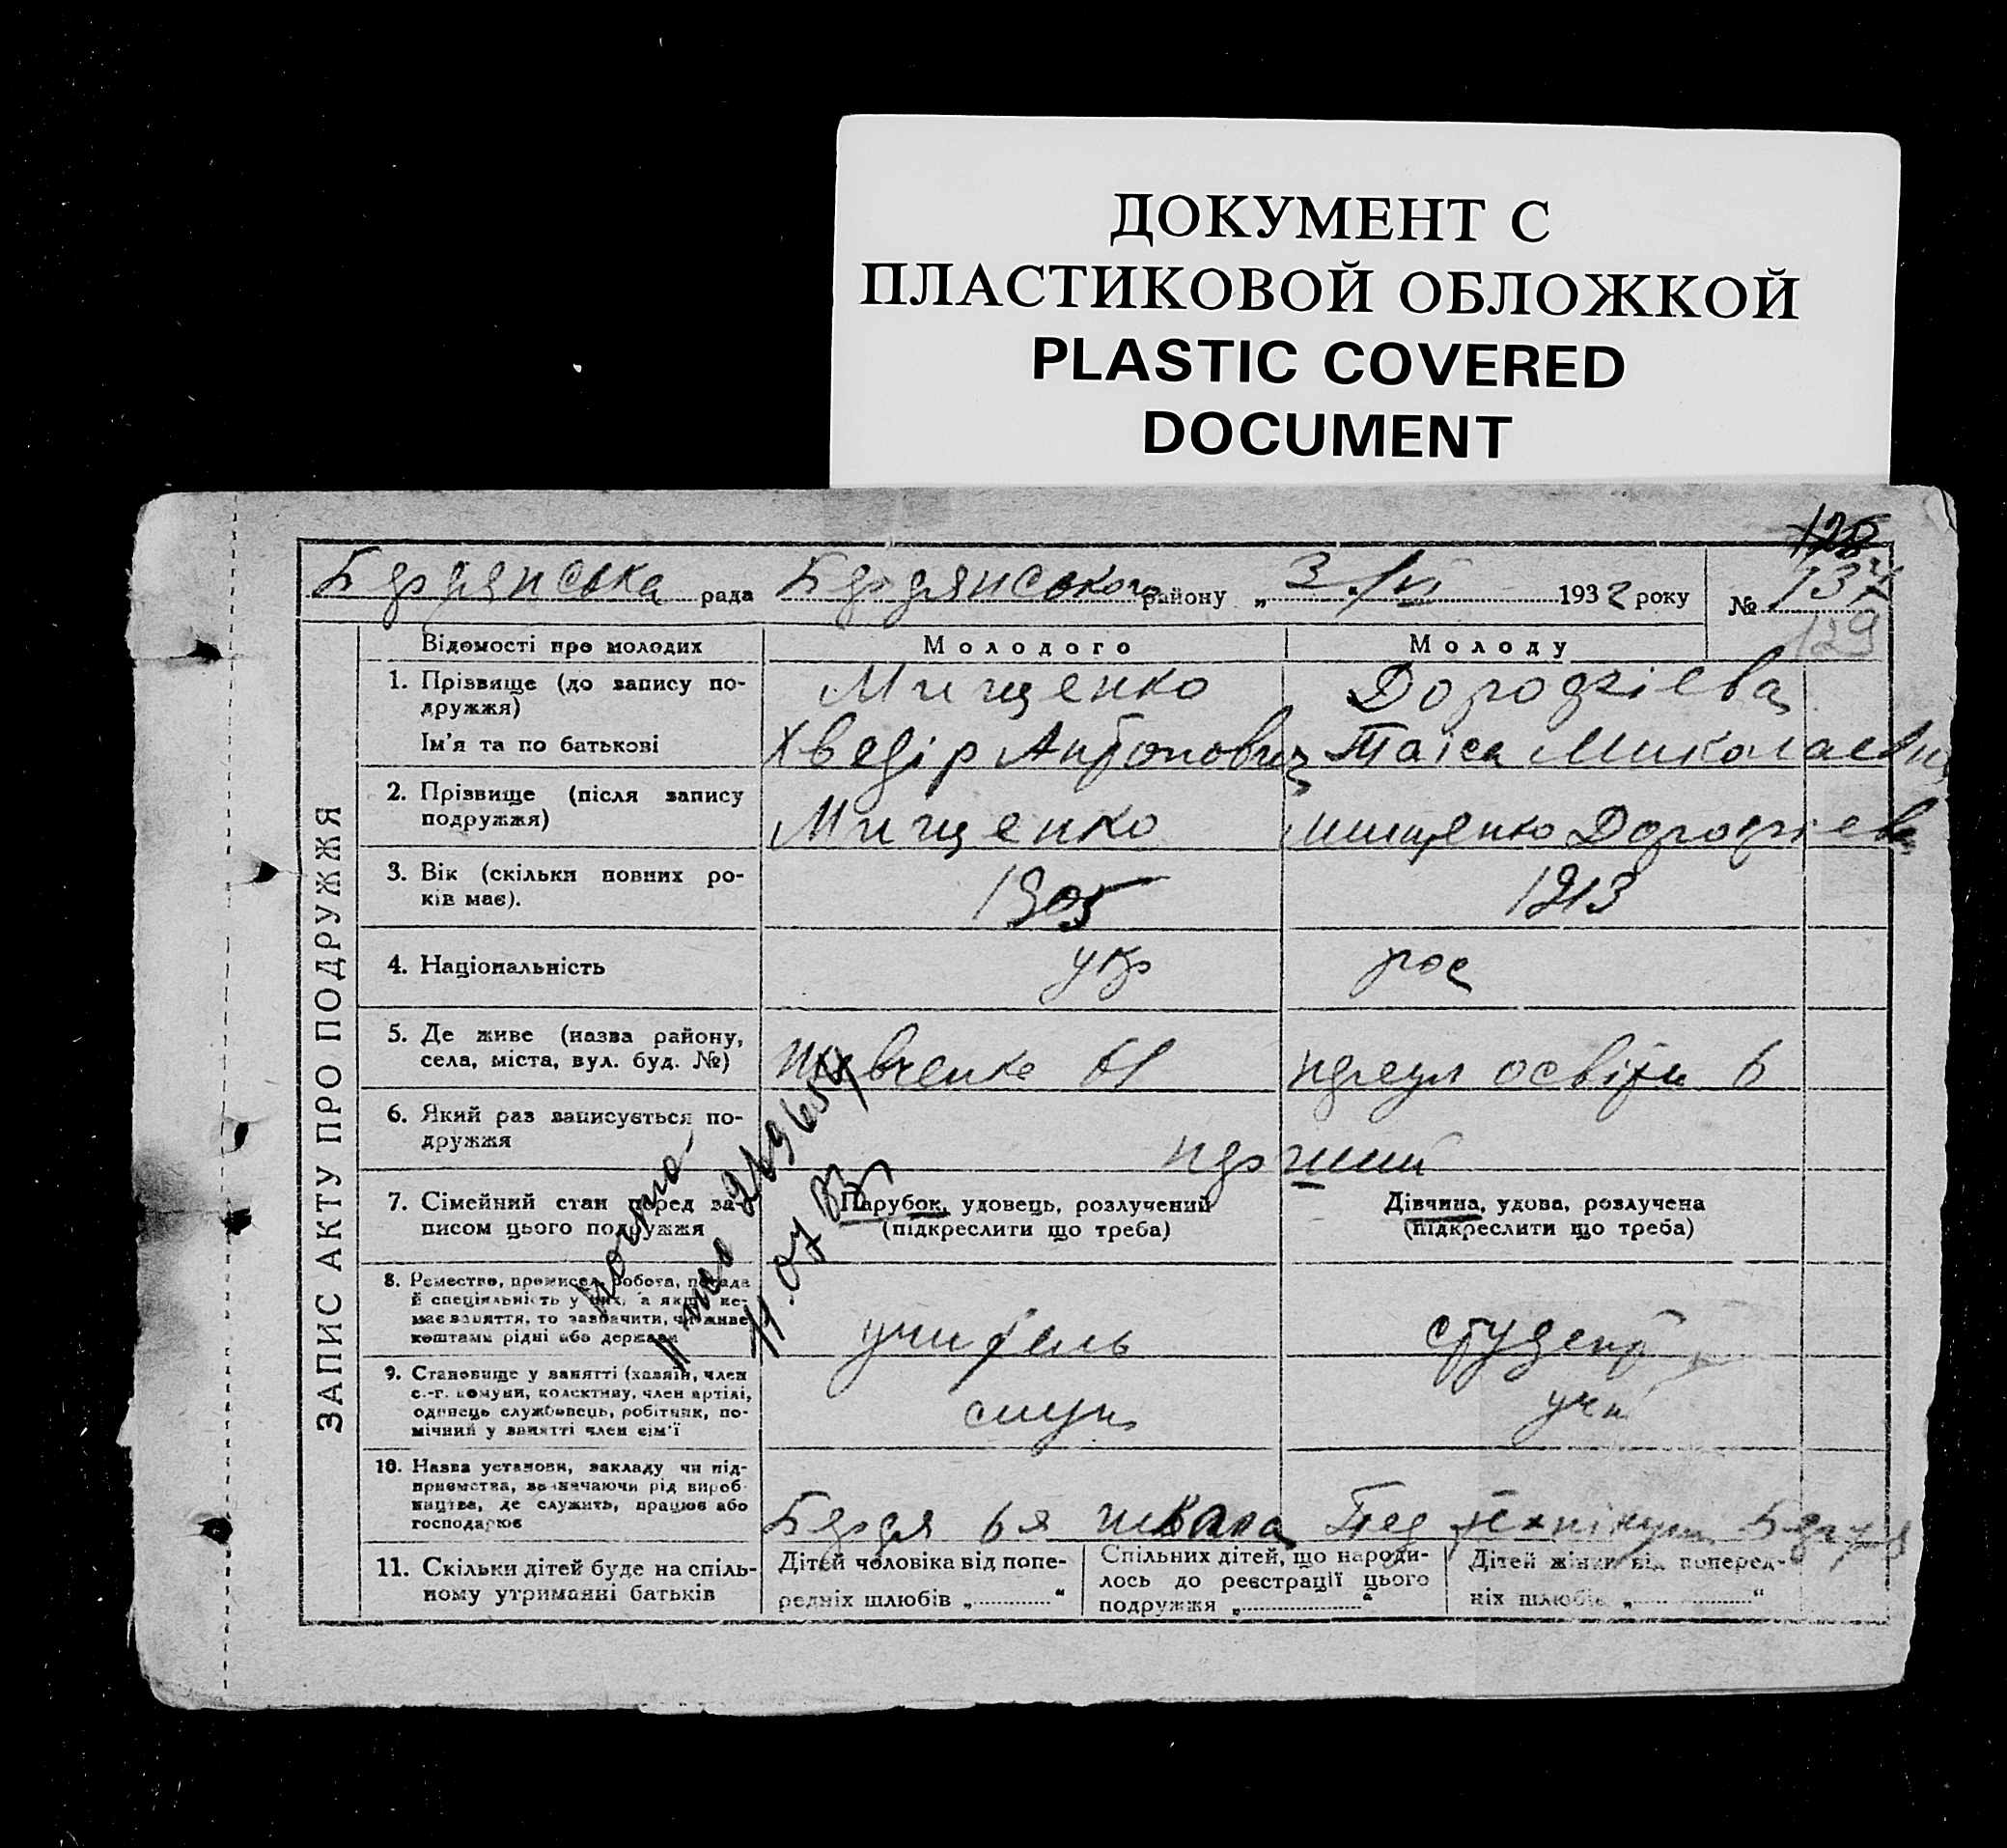 ДОКУМЕНТ С
ПЛАСТИКОВОЙ ОБЛОЖКОЙ
PLASTIC COVERED
DOCUMENT
128
Бердянська рада Бердянського району „ 3 " / VI 1932 року № 137
129
ЗАПИС АКТУ ПРО ПОДРУЖЖЯ
Відомості про молодих Молодого Молоду
1. Прізвище (до запису по-
дружжя)
Мищенко Дородзієва
Ім'я та по батькові Хведір Антонович Таїса Миколаєвна
2. Прізвище (після запису
подружжя)
Мищенко Мищенко Дородзієва
3. Вік (скільки повних ро-
ків має).
1905 1913
4. Національність укр рос
5. Де живе (назва району,
села, міста, вул. буд. №)
Шевченка 61 освіти 6
6. Який раз записується по-
дружжя
перший
7. Сімейний стан перед за-
писом цього подружжя
Парубок, удовець, розлучений
(підкреслити що треба)
Дівчина, удова, розлучена
(підкреслити що треба)
8. Ремество, промисел, робота, посада
й спеціяльність у них, а якщо не-
має заняття, то зазначити, чи живе
коштами рідні або держави
учитель студент
9. Становище у занятті (хазяїн, член
с.-г. комуни, колективу, член артілі,
одинець службовець, робітник, по-
мічний у занятті член сім'ї
служ уч
10. Назва установи, закладу чи під-
приємства, зазначаючи рід вироб-
ництва, де служить, працює або
господарює
Бердя 6я школа Пед технікум Бердя
11. Скільки дітей буде на спіль-
ному утриманні батьків
Дітей чоловіка від попе-
редніх шлюбів „ "
Спільних дітей, що народи-
лось до реєстрації цього
подружжя „ "
Дітей жінки від поперед-
ніх шлюбів „ "